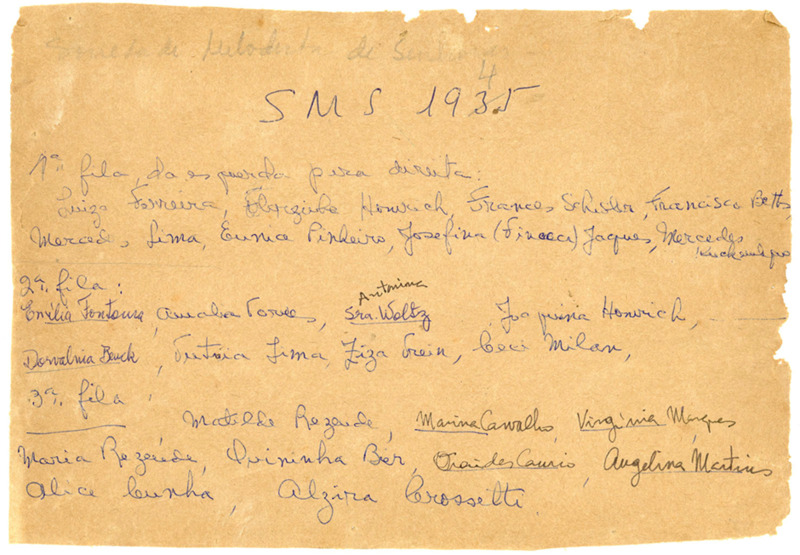 Sociedade Metodista de Senhoras
4
SMS 1935
1ª fila, da esquerda para direita:
Luiza Ferreira, Florzinha Homrich, Frances Schisler, Francisca Betts,
Mercedes Lima, Eunice Pinheiro, Josefina (Finoca) Jaques, Mercedes
2ª fila:
Antonina
Emília Fontoura, Amalia Torres, Sra. Woltz Joaquina Homrich,
Dorvalina Beuck, Tutóia Lima, Ziza Trein, Ceci Milan,
3ª fila
Matilde Rezende, Marina Carvalho, Virgínia Marques
Maria Rezende, Quininha Ber, Angelina Martins
Alice Cunha, Alzira Crossetti.